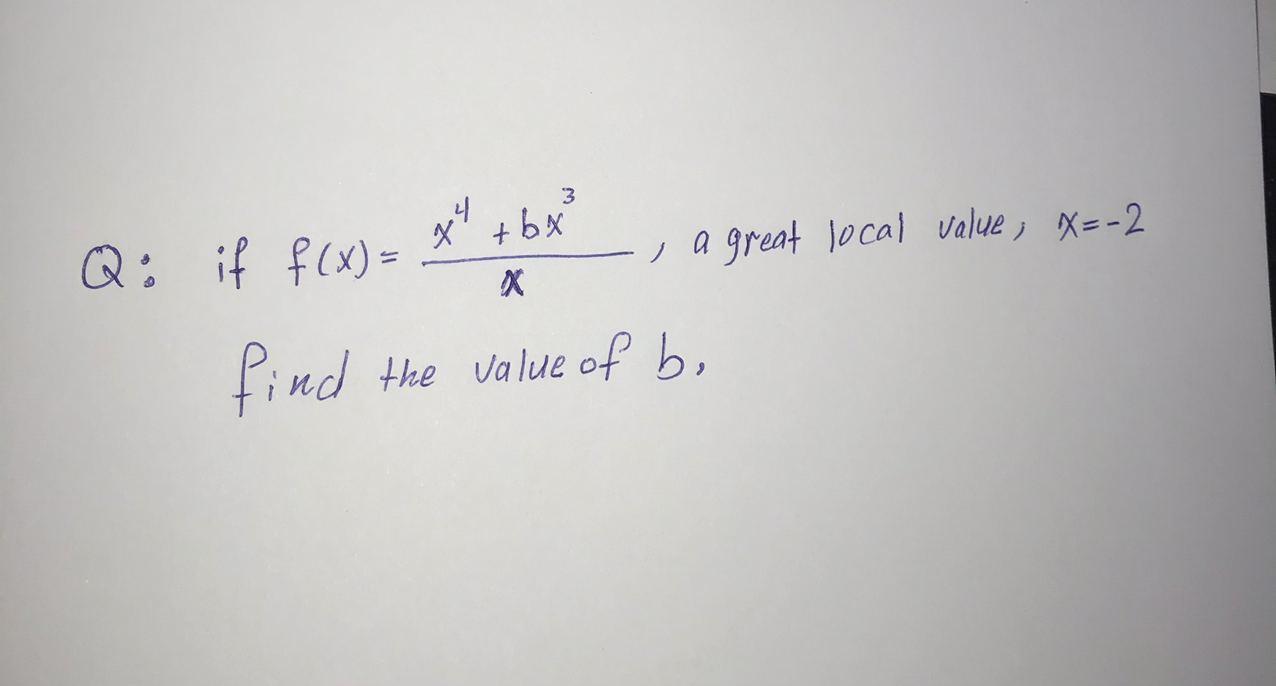 Q: if f(x) = \frac{x^4 + bx^3}{x}, a great local value, x=-2
find the value of b.